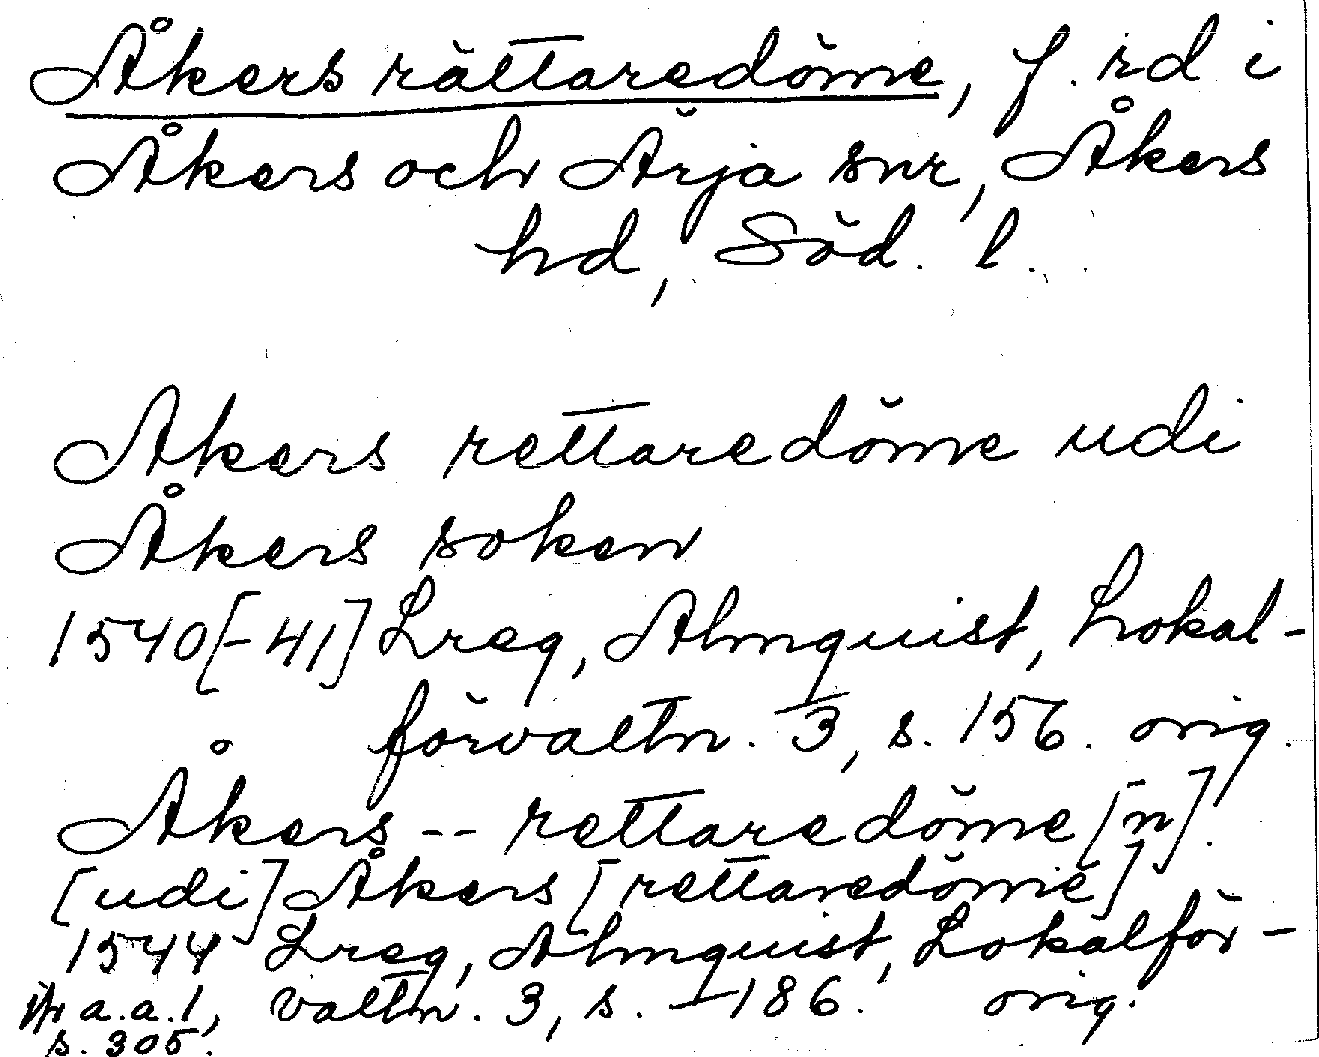 Åkers rättaredöme, f. rd i
Åkers och Ärja snr, Åkers
hd, Söd. l.
Akers rettaredöme udi
Åkers soken
1540[-41] Lreg, Almquist, Lokal-
förvaltn. 3, s. 156. orig.
Åkers -- rettaredöme[n]
[udi] Åkers [rettaredöme]
1544 Lreg, Almquist, Lokalför-
valtn. 3, s. 186. orig.
a.a.1,
s. 305.